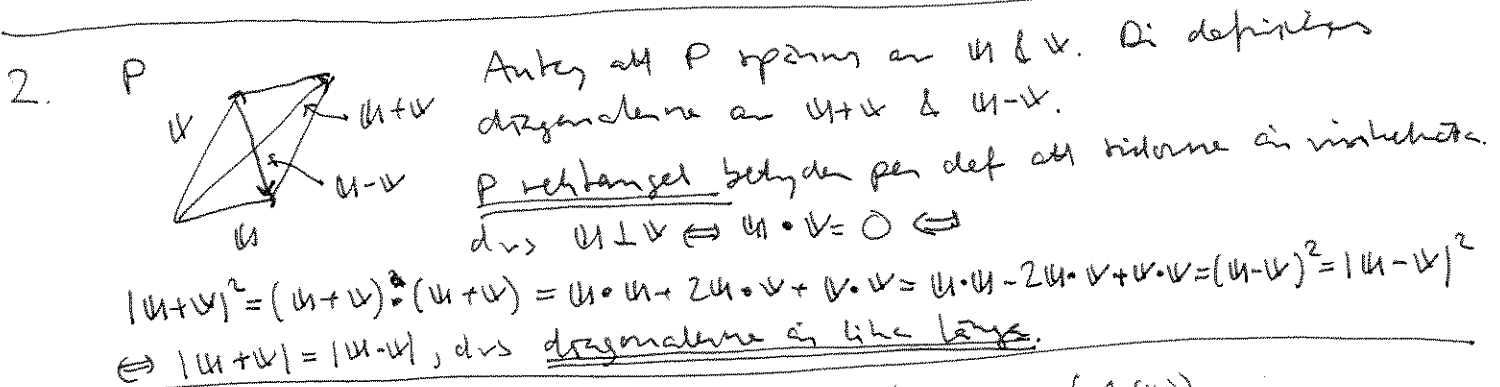 2. P
Antag att P spänns av u & v. Då definieras
v
u+v
diagonalerna av u+v & u-v.
u-v
P rektangel betyder per def att sidorna är vinkelräta.
u
dvs u⊥v ⇔ u•v=0 ⇔
|u+v|²=(u+v)•(u+v) = u•u+2u•v+v•v=u•u-2u•v+v•v=(u-v)²=|u-v|²
⇔ |u+v|=|u-v|, dvs diagonalerna är lika långa.